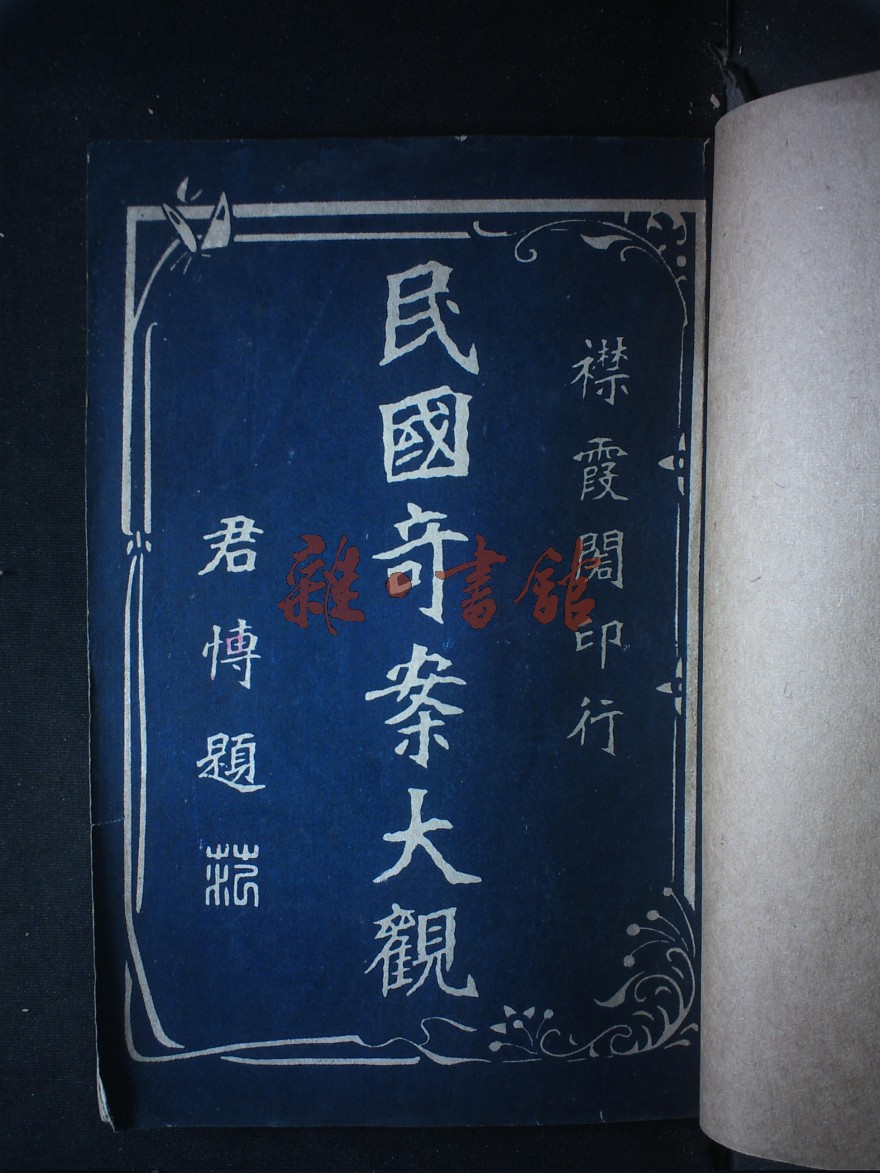 襟霞閣印行
民國奇案大觀
君慱題
雜·書館